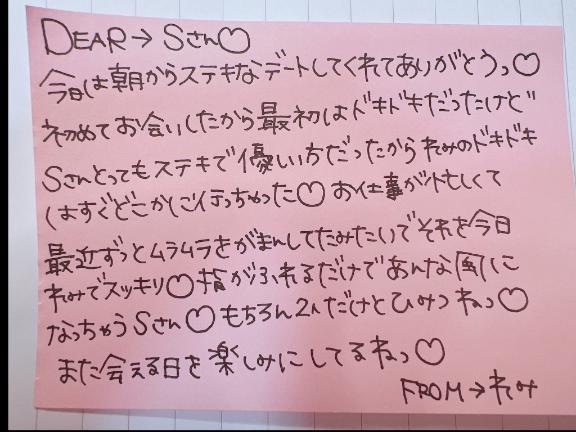 DEAR→ Sさん♡
今日は朝からステキなデートしてくれてありがとうっ♡
初めてお会いしたから最初はドキドキだったけど
Sさんとってもステキで優しい方だったかられみのドキドキ
はすぐどこかに行っちゃった♡ お仕事が忙しくて
最近ずっとムラムラをがまんしてたみたいでそれを今日
れみでスッキリ♡指がふれるだけであんな風に
なっちゃうSさん♡もちろん2人だけとひみつねっ♡
また会える日を楽しみにしてるねっ♡
FROM→れみ